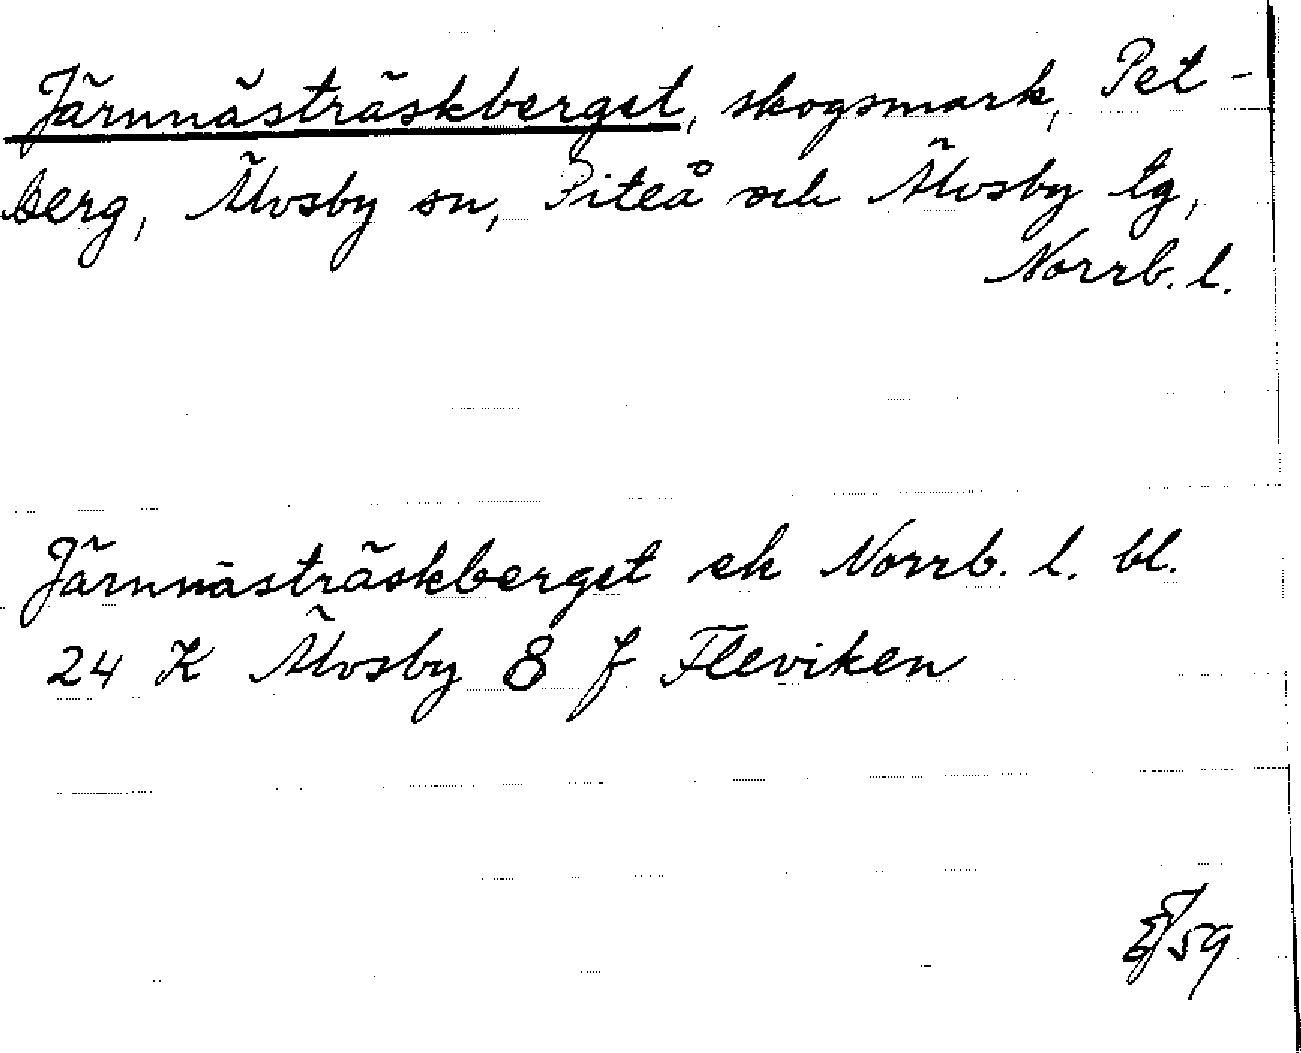 Järnnästräskberget, skogsmark, Pet-
berg, Älvsby sn, Piteå och Älvsby tg,
Norrb. l.
Järnnästräskberget ek Norrb. l. bl.
24 K Älvsby 8 f Fleviken
59